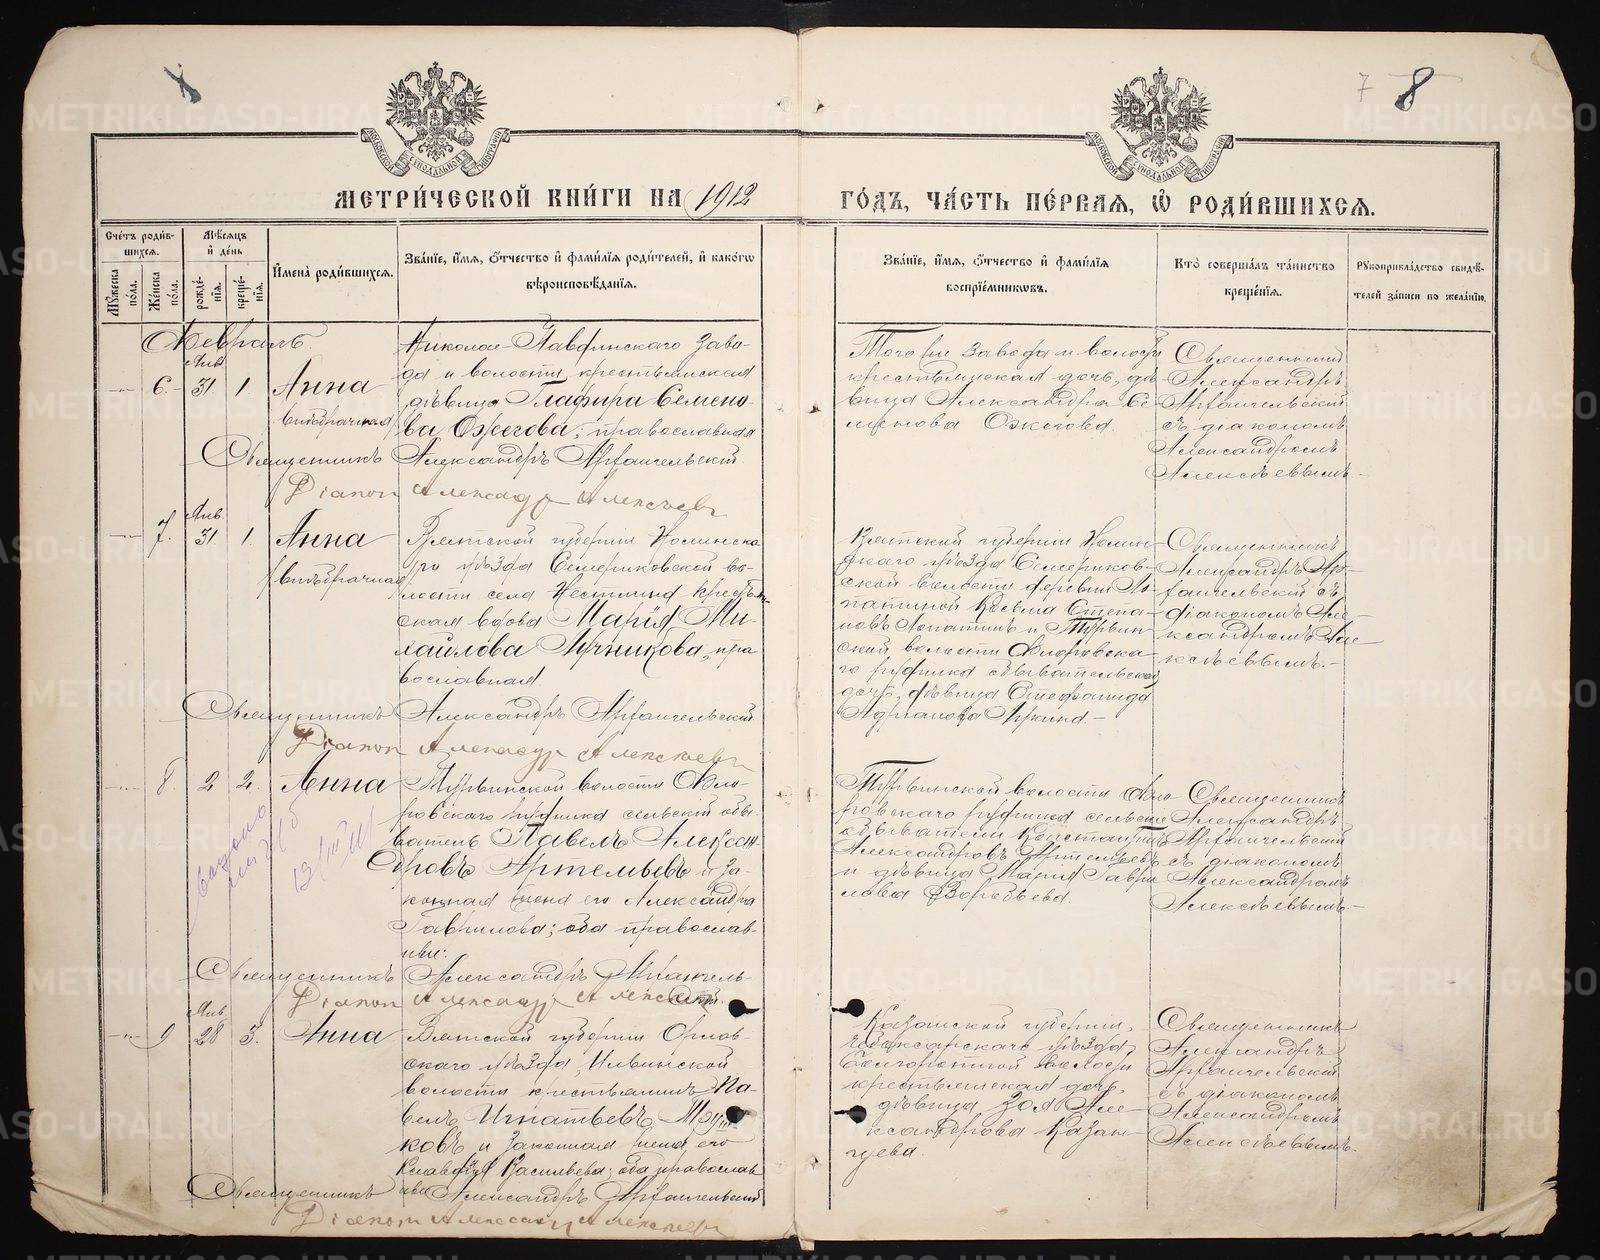 7 8
МЕТРИ́ЧЕСКОЙ КНИ́ГИ НА 1912 ГО́ДЪ, ЧА́СТЬ ПЕ́РВАЯ, Ѡ҆ РОДИ́ВШИХСЯ.
Сче́тъ роди́в-
шихся.
Мꙋ́жеска по́ла.
Же́нска по́ла.
Мѣ́сяцъ
и҆ де́нь
рожде́-
нїя.
креще́-
нїя.
И҆мена̀ роди́вшихся.
Зва́нїе, и҆́мя, ѻ҆́тчество и҆ фами́лїя роди́телей, и҆ како́гѡ
вѣроисповѣ́данїя.
Зва́нїе, и҆́мя, ѻ҆́тчество и҆ фами́лїя
воспрїе́мниковъ.
Кто̀ соверша́лъ та́инство
креще́нїя.
Рꙋкоприкла́дство свидѣ́-
телей за́писи по жела́нїю.
Февраль.
Янв.
6. 31. 1. Анна
внѣбрачная
Николае-Павдинскаго заво-
да и волости, крестьянская
дѣвица Глафира Семено-
ва Ожегова; православная
Того же завода и волости
крестьянская дочь, дѣ-
вица Александра Се-
менова Ожегова.
Священникъ
Александръ
Архангельскій
съ діакономъ
Александромъ
Алексѣевымъ.
Священникъ Александръ Архангельскій
Діакон Александр Алексеев
Янв.
7. 31 1. Анна
внѣбрачная
Вятской губерніи Нолинска-
го уѣзда Семериковской во-
лости села крестьян-
ская вдова Марія Ми-
хайлова Лучникова, пра-
вославная
Вятской губерніи Нолин-
скаго уѣзда Семериков-
ской волости деревни Ло-
патиной Козьма Степа-
новъ Лопатинъ и Турьин-
ской волости
го рудника обывательская
дочь, дѣвица Стефанида
Адріанова
Священникъ
Александръ Ар-
хангельскій съ
діакономъ Але-
ксандромъ Але-
ксѣевымъ.
Священникъ Александръ Архангельскій
Діакон Александр Алексеев
8. 2 2. Анна
Турьинской волости Фло-
ровскаго рудника сельскій обы-
ватель Павелъ Алексан-
дровъ Артемьевъ и за-
конная жена его Александра
Гаврилова; оба православ-
ные.
Турьинской волости Фло-
ровскаго рудника сельскіе
обыватели Константинъ
Александровъ Артемьевъ
и дѣвица Марія Гаври-
лова Воробьева
Священникъ
Александръ
Архангельскій
съ діакономъ
Александромъ
Алексѣевымъ.
Священникъ Александръ Архангель-
Діакон Александр Алексеев
Янв.
9 28 5. Анна
Вятской губерніи Орлов-
скаго уѣзда, Ильинской
волости крестьянинъ Па-
велъ Игнатьевъ
ковъ и законная жена его
Клавдія Васильева; оба православ-
ные
Казанской губерніи,
Чебоксарскаго уѣзда,
волости
крестьянская дочь,
дѣвица Зоя Але-
ксандрова Казан-
цева.
Священникъ
Александръ
Архангельскій
съ діакономъ
Александромъ
Алексѣевымъ.
Священникъ Александръ Архангельскій
Діакон Александр Алексеев
METRIKI.GASO-URAL.RU